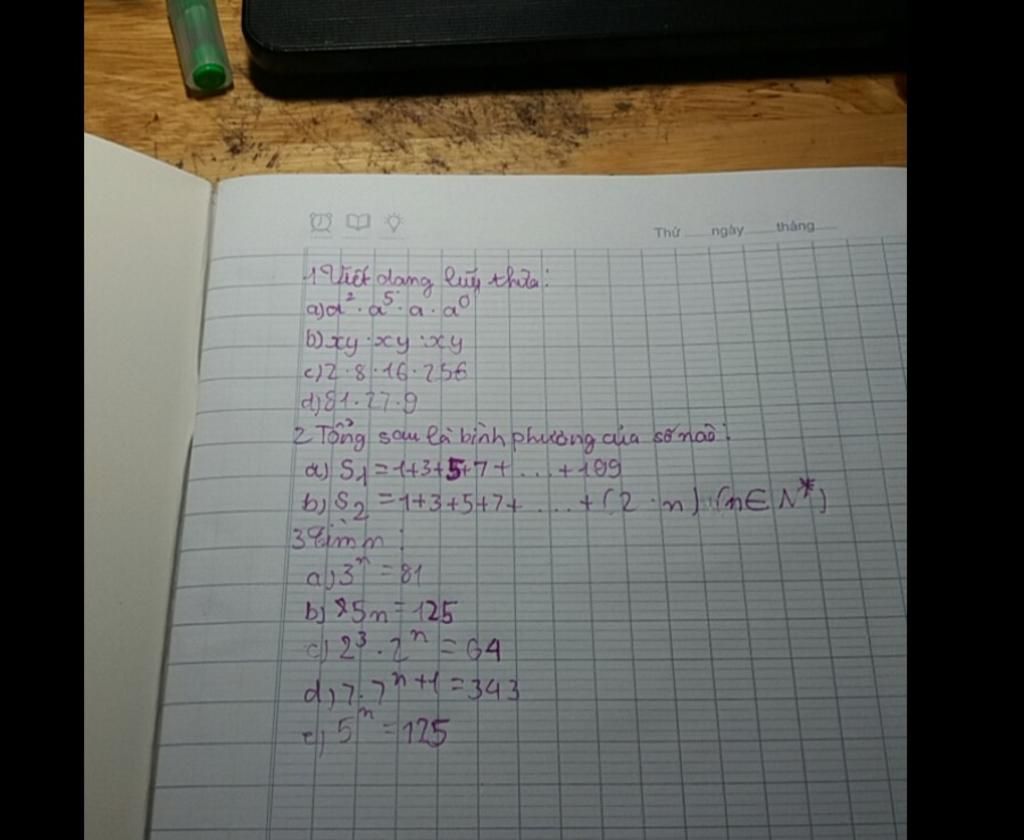 Thứ ngày tháng
1 Viết dạng lũy thừa:
a) a² · a⁵ · a · a⁰
b) xy · xy · xy
c) 2 · 8 · 16 · 256
d) 81 · 27 · 9
2 Tổng sau là bình phương của số nào:
a) S₁ = 1+3+5+7+ ... +199
b) S₂ = 1+3+5+7+ ... +(2 · n) (n ∈ N*)
3 Tìm n:
a) 3ⁿ = 81
b) 25n = 125
c) 2³ · 2ⁿ = 64
d) 7 · 7ⁿ⁺¹ = 343
e) 5ⁿ = 125